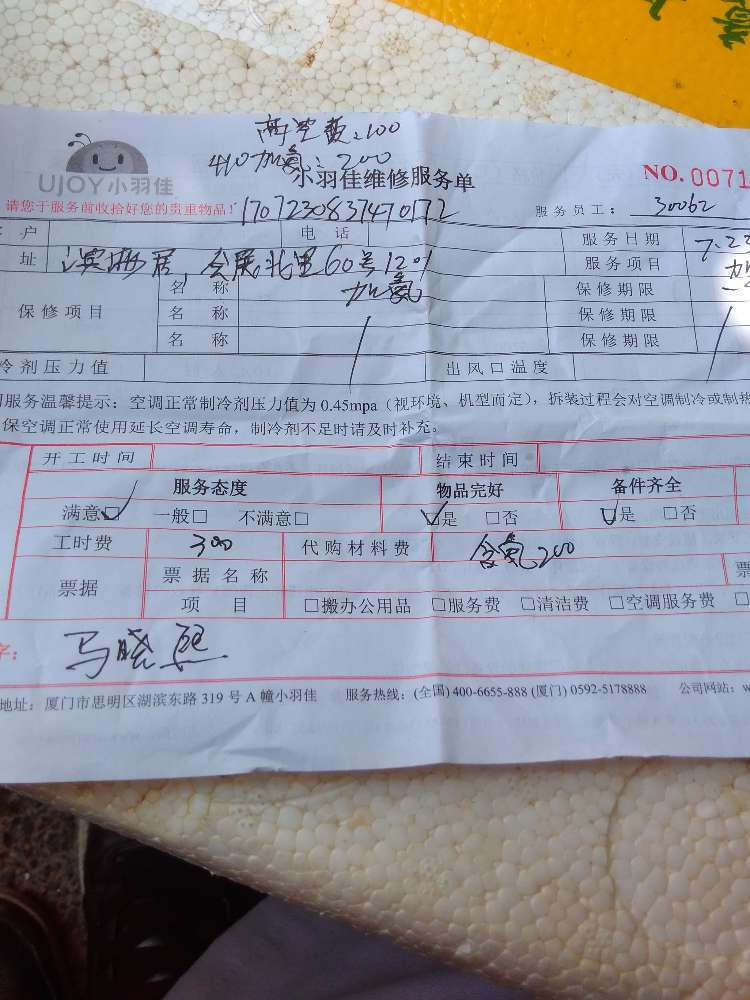 高空费:100
410加氟:200
UJOY小羽佳
小羽佳维修服务单
NO.0071
请您于服务前收拾好您的贵重物品!
1707230837470172
服务员工: 30062
户 电话 服务日期 7.23
址 滨海居,会展北里60号1201 服务项目 加
保修项目 名称 加氟 保修期限
名称 保修期限
名称 保修期限
冷剂压力值 出风口温度
服务温馨提示:空调正常制冷剂压力值为0.45mpa(视环境、机型而定),拆装过程会对空调制冷或制热
保空调正常使用延长空调寿命,制冷剂不足时请及时补充。
开工时间 结束时间
服务态度 物品完好 备件齐全
满意☑ 一般□ 不满意□ ☑是 □否 ☑是 □
工时费 300 代购材料费 含氟200
票据 票据名称 票
项目 □搬办公用品 □服务费 □清洁费 □空调服务费 □
字: 马晓熙
地址:厦门市思明区湖滨东路319号A幢小羽佳 服务热线:(全国)400-6655-888 (厦门) 0592-5178888 公司网站:w